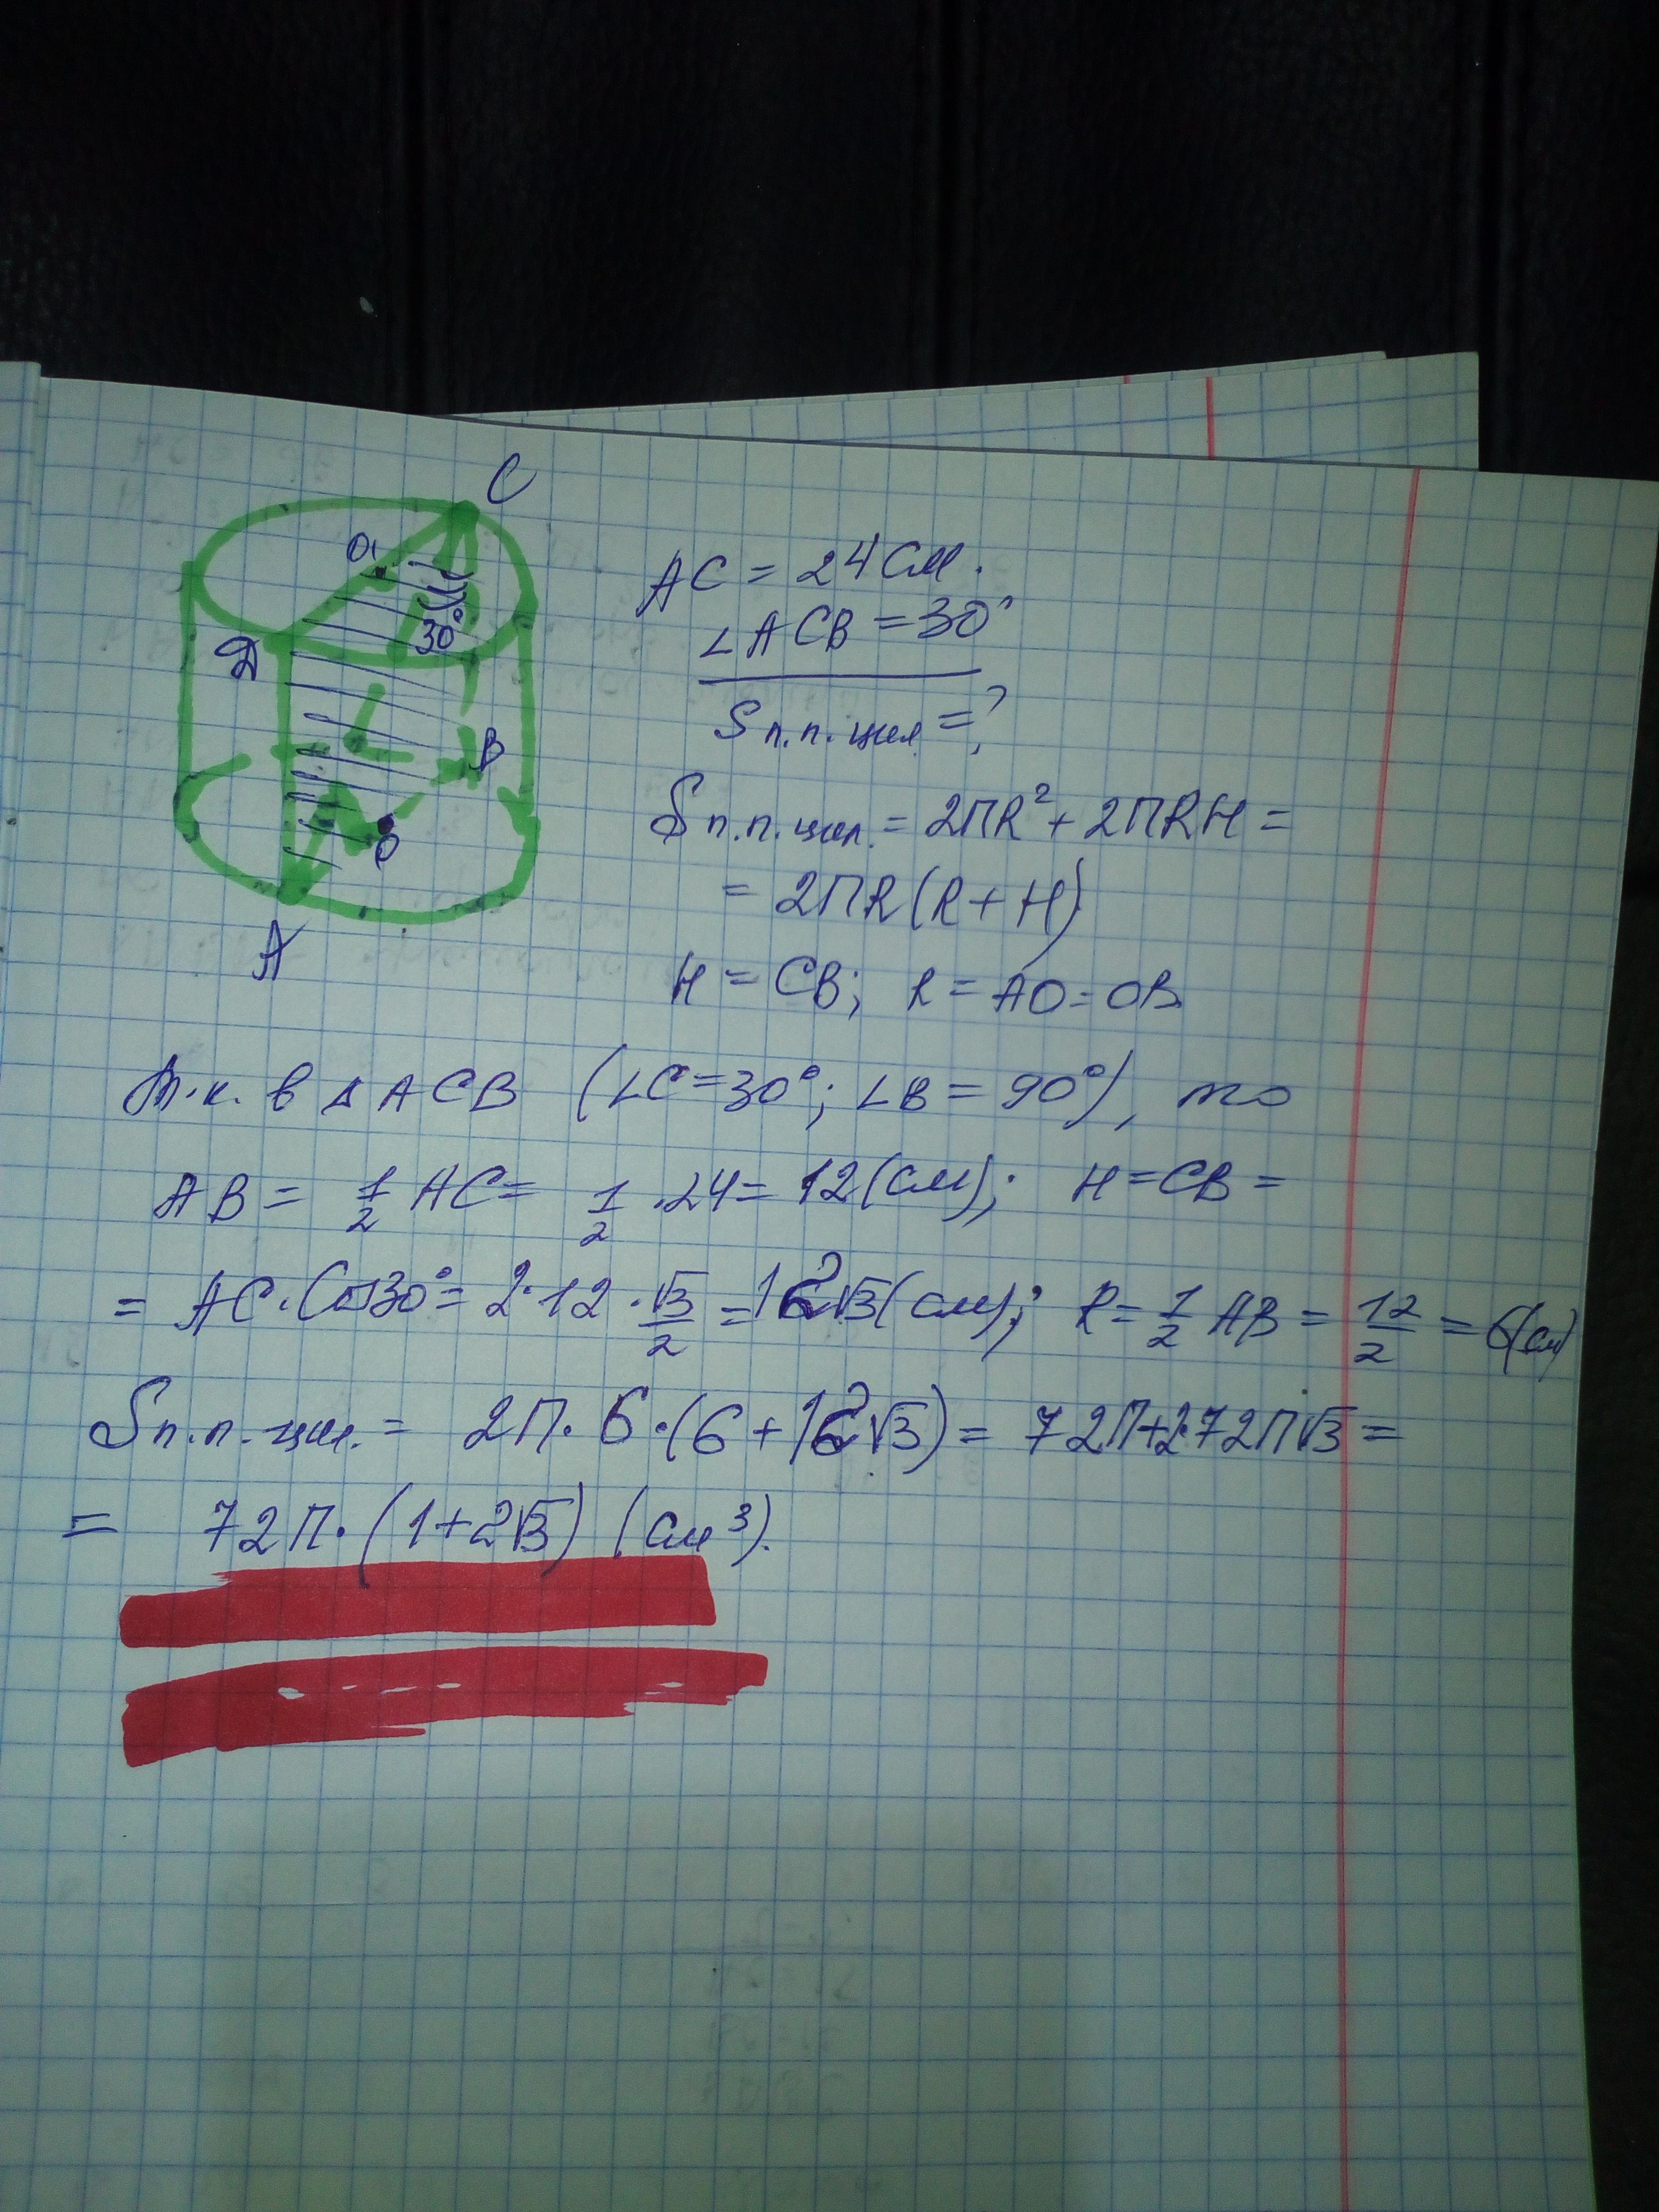 C
O₁
30°
D
B
O
A
AC = 24 см.
∠ACB = 30°
Sп.п. цил = ?
Sп.п. цил. = 2ПR² + 2ПRH =
= 2ПR(R + H)
H = CB; R = AO = OB
т.к. в ΔACB (∠C = 30°; ∠B = 90°), то
AB = 1/2 AC = 1/2 · 24 = 12 (см); H = CB =
= AC · Cos30° = 2 · 12 · √3/2 = 12√3 (см); R = 1/2 AB = 12/2 = 6(см)
Sп.п. цил. = 2П · 6 · (6 + 12√3) = 72П + 2·72П√3 =
= 72П · (1 + 2√3) (см³).